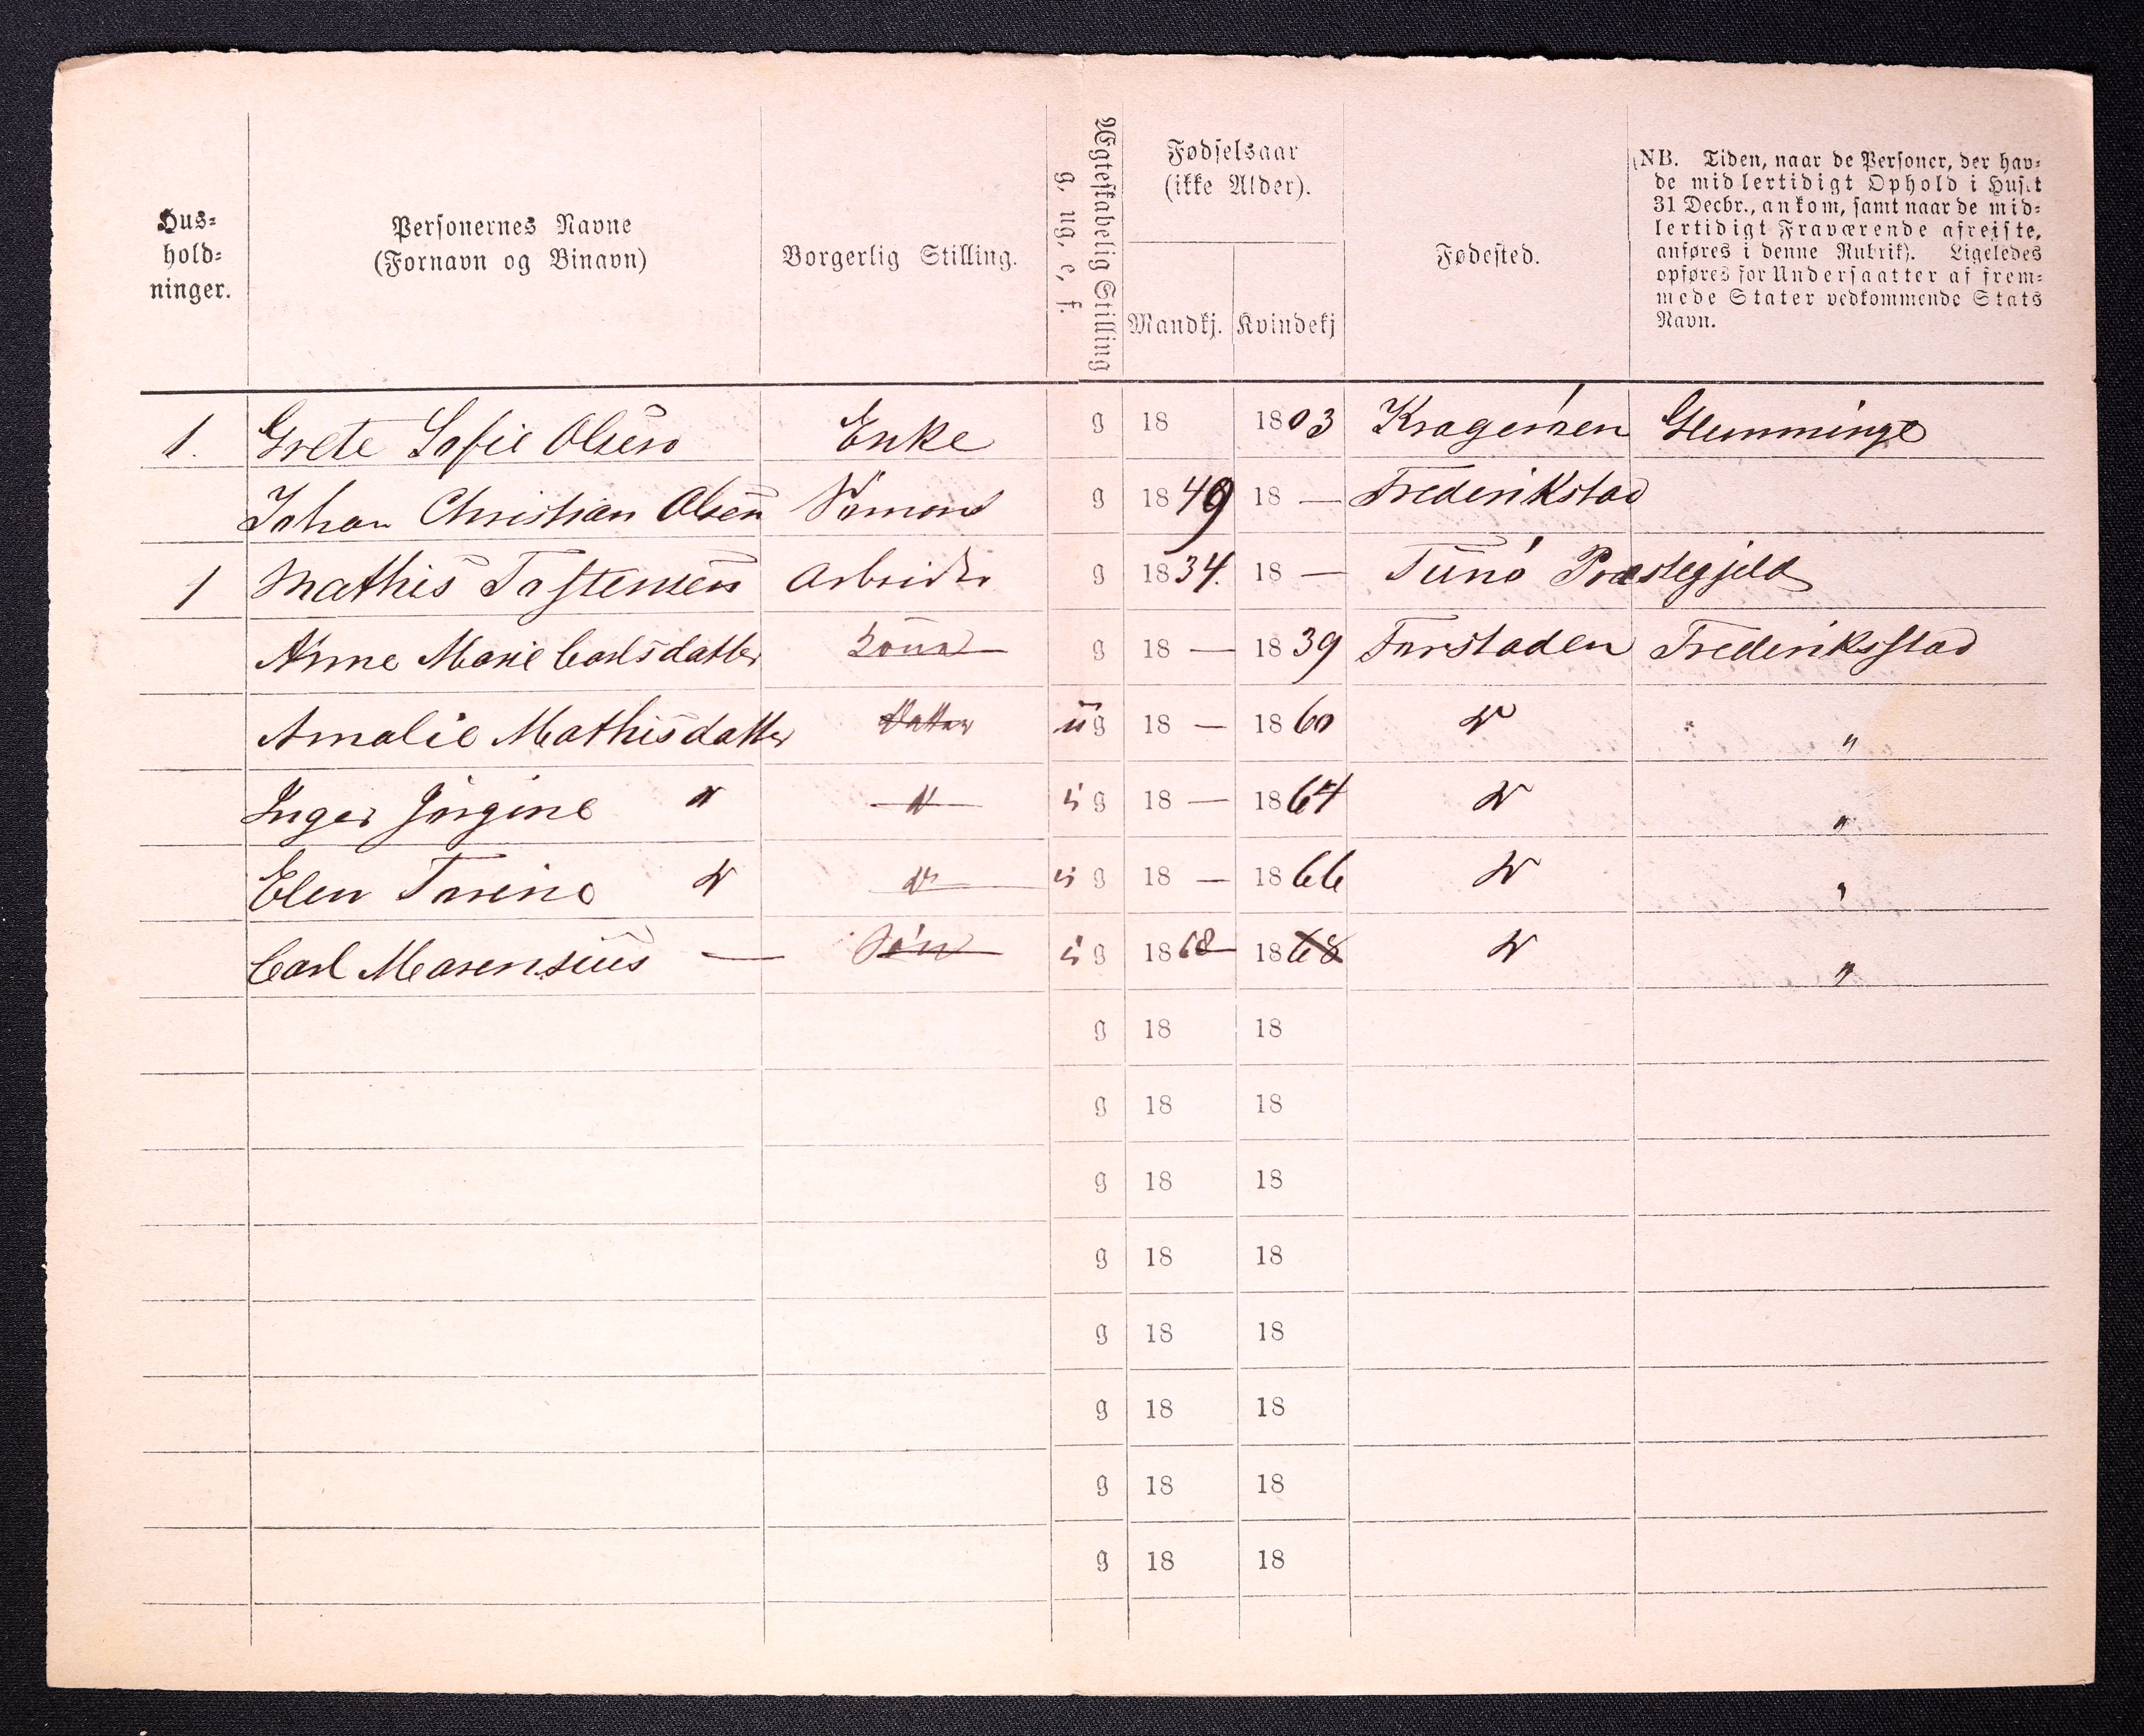 Hus-
hold-
ninger.
Personernes Navne
(Fornavn og Binavn)
Borgerlig Stilling.
Ægteskabelig Stilling
g, ug, e, f.
Fødselsaar
(ikke Alder).
Mandkj. Kvindekj
Fødested.
(NB. Tiden, naar de Personer, der hav-
de midlertidigt Ophold i Huset
31 Decbr., ankom, samt naar de mid-
lertidigt Fraværende afreiste,
anføres i denne Rubrik). Ligeledes
opføres for Undersaatter af frem-
mede Stater vedkommende Stats
Navn.
1. Grete Sofie Olsen Enke g 18 1803 Kragerøen Glemminge
Johan Christian Olsen Sømand g 1849 18 — Frederikstad
1 Mathis Tostensen Arbeider g 1834. 18 — Tunø Præstegjeld
Anne Marie Carlsdatter Kone g 18 — 1839 Forstaden Frederiksstad
Amalie Mathisdatter Datter ug 18 — 1860 " "
Inger Jørgine " " ug 18 — 1864 " "
Elen " " ug 18 — 1866 " "
Carl Marensius — Søn ug 1868 1868 " "
g 18 18
g 18 18
g 18 18
g 18 18
g 18 18
g 18 18
g 18 18
g 18 18